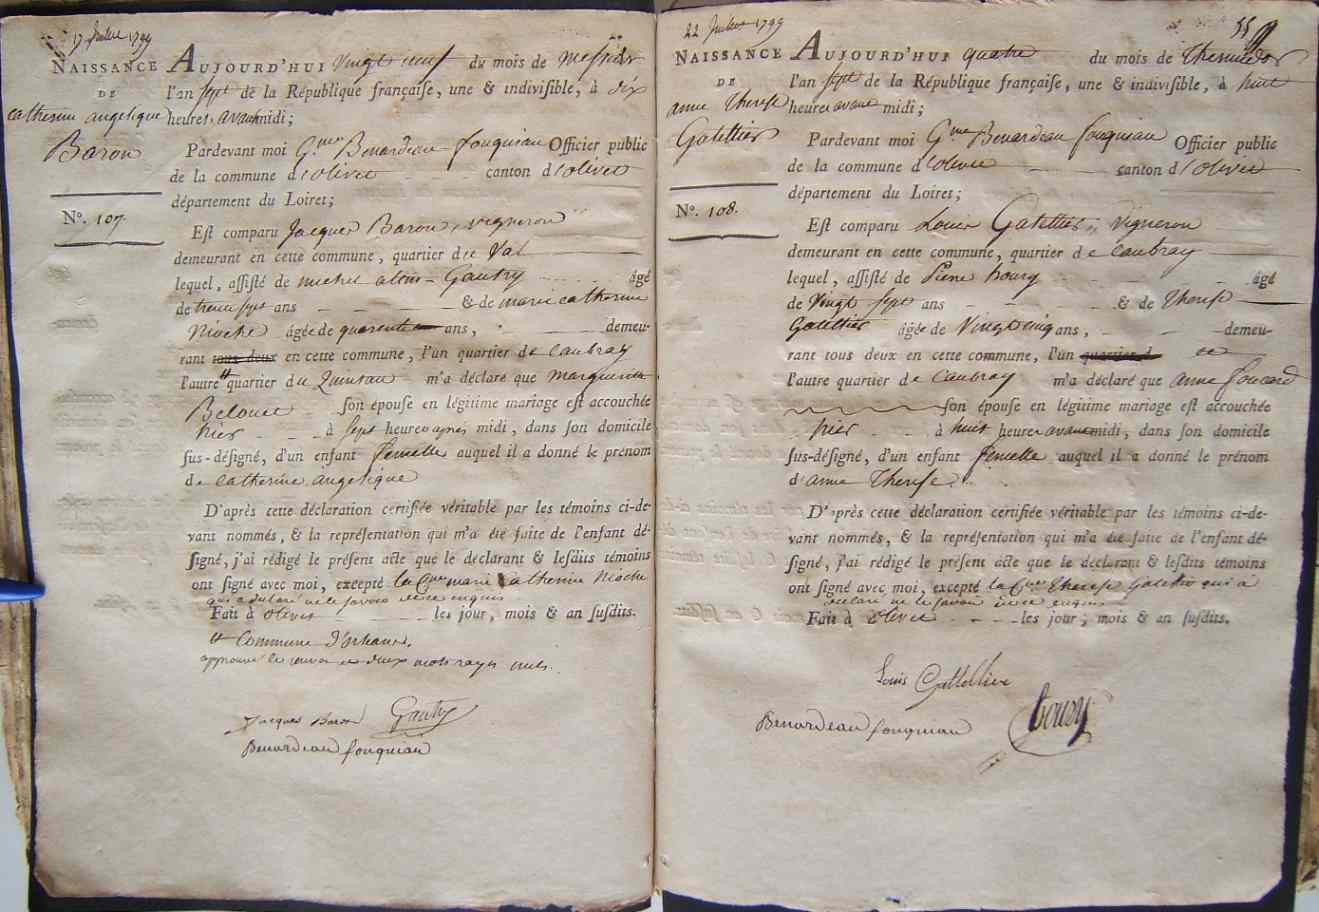 17 Juillet 1799
NAISSANCE
DE
Catherine angelique
Baron
N°. 107.
AUJOURD'HUI vingt neuf du mois de messidor
l'an sept de la République françaiſe, une & indiviſible, à dix
heures avant midi;
Pardevant moi G.me Benardeau fouqueau Officier public
de la commune d'olivet canton d'olivet
département du Loiret;
Eſt comparu Jacques Baron, vigneron
demeurant en cette commune, quartier du Val
lequel, aſſiſté de michel Gautry âgé
de trente sept ans & de marie catherine
Moche âgée de quarente ans, demeu-
rant tous deux en cette commune, l'un quartier de Caubray
l'autre # quartier du Quinteau m'a déclaré que marguerite
Belouet ſon épouſe en légitime mariage eſt accouchée
hier à sept heures après midi, dans ſon domicile
ſus-déſigné, d'un enfant femelle auquel il a donné le prénom
de Catherine angelique
D'après cette déclaration certifiée véritable par les témoins ci-de-
vant nommés, & la repréſentation qui m'a été faite de l'enfant dé-
ſigné, j'ai rédigé le préſent acte que le déclarant & leſdits témoins
ont ſigné avec moi, excepté la C.ne marie Catherine Moche
qui a declaré ne le savoir de ce enquis
Fait à olivet les jour, mois & an ſuſdits.
# Commune d'orleans.
approuvé le renvoi et deux mots rayés nuls.
Jacques Baron Gautry
Benardeau fouqueau
22 Juillet 1799
55
NAISSANCE
DE
anne Therese
Gatellier
N°. 108.
AUJOURD'HUI quatre du mois de Thermidor
l'an sept de la République françaiſe, une & indiviſible, à huit
heures avant midi;
Pardevant moi G.me Benardeau fouqueau Officier public
de la commune d'olivet canton d'olivet
département du Loiret;
Eſt comparu Louis Gatellier, vigneron
demeurant en cette commune, quartier de Caubray
lequel, aſſiſté de Pierre Boury âgé
de Vingt sept ans & de Therese
Gatellier âgée de Vingt cinq ans, demeu-
rant tous deux en cette commune, l'un quartier d et
l'autre quartier de Caubray m'a déclaré que anne foucard
ſon épouſe en légitime mariage eſt accouchée
hier à huit heures avant midi, dans ſon domicile
ſus-déſigné, d'un enfant femelle auquel il a donné le prénom
d'anne Therese.
D'après cette déclaration certifiée véritable par les témoins ci-de-
vant nommés, & la repréſentation qui m'a été faite de l'enfant dé-
ſigné, j'ai rédigé le préſent acte que le déclarant & leſdits témoins
ont ſigné avec moi, excepté la C.ne Therese Gatellier qui a
declaré ne le savoir de ce enquis
Fait à olivet les jour, mois & an ſuſdits.
Louis Gatellier
Benardeau fouqueau
Boury